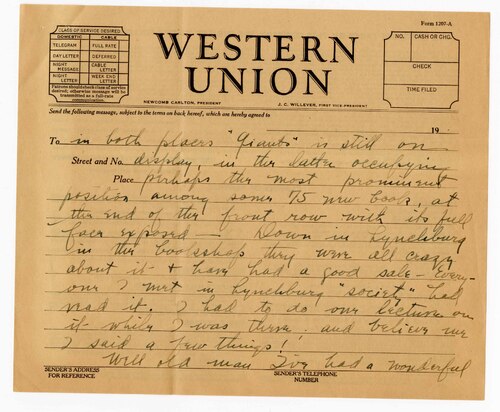 Form 1207-A
CLASS OF SERVICE DESIRED
DOMESTIC CABLE
TELEGRAM FULL RATE
DAY LETTER DEFERRED
NIGHT MESSAGE CABLE LETTER
NIGHT LETTER WEEK END LETTER
Patrons should check class of service desired; otherwise message will be transmitted as a full-rate communication
WESTERN UNION
NEWCOMB CARLTON, PRESIDENT J. C. WILLEVER, FIRST VICE PRESIDENT
NO. CASH OR CHG.
CHECK
TIME FILED
Send the following message, subject to the terms on back hereof, which are hereby agreed to
19
To in both places "Giants" is still on
Street and No. display, in the latter occupying
Place perhaps the most prominent
position among some 75 new books, at
the end of the front row with its full
face exposed — Down in Lynchburg
in the bookshop they were all crazy
about it & have had a good sale. Every-
one I met in Lynchburg "society" had
read it. I had to do one lecture on
it while I was there. and believe me
I said a few things!
Well old man I've had a wonderful
SENDER'S ADDRESS FOR REFERENCE
SENDER'S TELEPHONE NUMBER